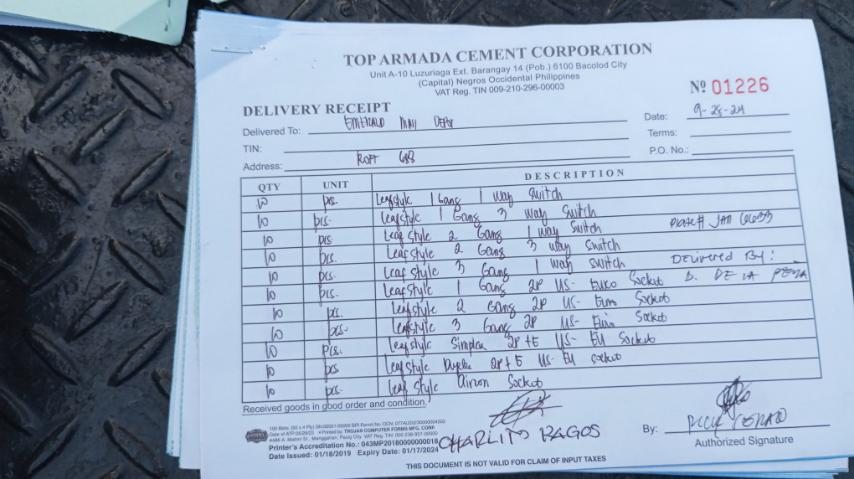 TOP ARMADA CEMENT CORPORATION
Unit A-10 Luzuriaga Ext. Barangay 14 (Pob.) 6100 Bacolod City
(Capital) Negros Occidental Philippines
VAT Reg. TIN 009-210-296-00003
Nº 01226
DELIVERY RECEIPT
Date: 9-28-24
Delivered To: EMERALD
Terms:
TIN:
P.O. No.:
Address:
QTY UNIT DESCRIPTION
10 pcs. Leafstyle 1 Gang 1 way Switch
10 pcs. Leafstyle 1 Gang 3 way Switch
10 pcs Leaf style 2 Gang 1 way Switch Plate#
10 pcs. Leaf style 2 Gang 3 way Switch
10 pcs. Leaf style 3 Gang 1 way switch Delivered By:
10 pcs. Leaf style 1 Gang 2P US- Euro Socket B. DE LA PENA
10 pcs. Leafstyle 2 Gang 2P US- Euro Socket
10 pcs. Leafstyle 3 Gang 2P US- Euro Socket
10 Pcs. Leafstyle Simplex 2P+E US- EU Socket
10 pcs Leafstyle Duplex 2P+E US- EU Socket
10 pcs. Leaf style Aircon Socket
Received goods in good order and condition.
CHARLITO BAGOS
By:
Authorized Signature
Printer's Accreditation No.: 043MP20180000000018
Date Issued: 01/18/2019 Expiry Date: 01/17/2024
THIS DOCUMENT IS NOT VALID FOR CLAIM OF INPUT TAXES